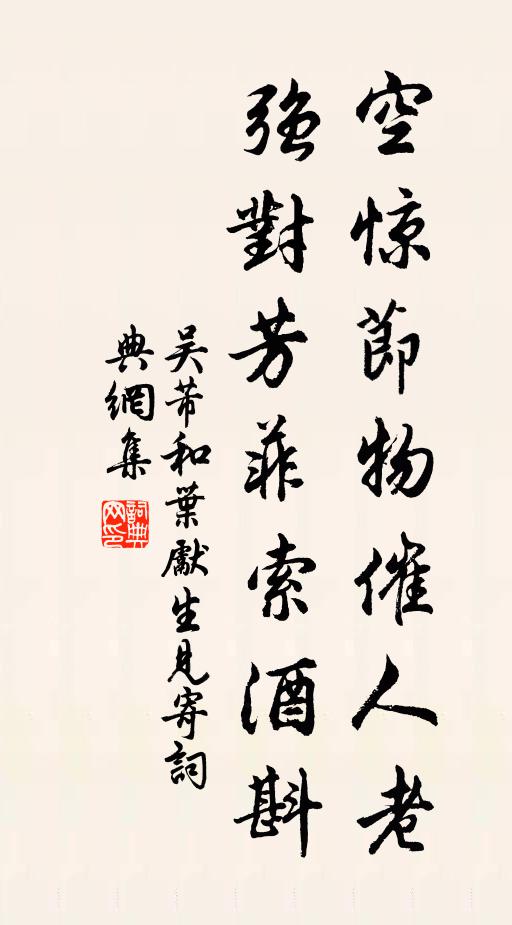 空惊節物催人老
強對芳菲索酒斟
吴芾和葉獻生見寄詞
典網集
詞典网印